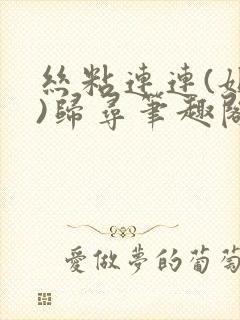 絲粘連連(
)歸尋筆趣閣
愛做夢的葡萄